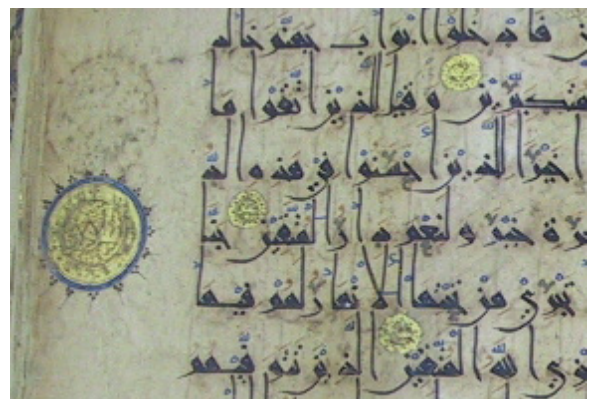 فادخلوا ابواب جهنم خالد
متكبرين وقيل للذين اتقوا ما
ا خيرا للذين احسنوا في هذه الد
رة خير ولنعم دار المتقين جنا
تجري من تحتها الانهار لهم فيها
زي الله المتقين الذين تتوفيهم